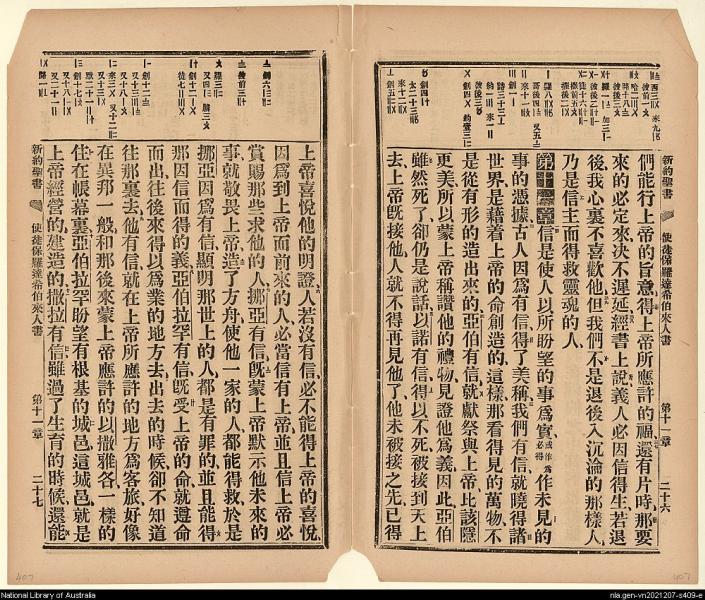 新約聖書
使徒保羅達希伯來人書
第十一章
二十六
們能行上帝的旨意得上帝所應許的福還有片時那要
來的必定來決不遲延經書上說義人必因信得生若退
後我心裏不喜歡他但我們不是退後入沉淪的那樣人
乃是信主而得救靈魂的人
第十一章信是使人以所盼望的事爲實或作必得爲作未見的
事的憑據古人因爲有信得了美稱我們有信就曉得諸
世界是藉着上帝的命創造的這樣那看得見的萬物不
是從有形的造出來的亞伯有信就獻祭與上帝比該隱
更美所以蒙上帝稱讚他的禮物見證他爲義因此亞伯
雖然死了卻仍是說話以諾有信得以不死被接到天上
去上帝旣接他人就不得再見他了他未被接之先已得
上帝喜悅他的明證人若沒有信必不能得上帝的喜悅
因爲到上帝面前來的人必當信有上帝並且信上帝必
賞賜那些求他的人挪亞有信旣蒙上帝默示他未來的
事就敬畏上帝造了方舟使他一家的人都能得救於是
挪亞因爲有信顯明那世上的人都是有罪的並且能得
那因信而得的義亞伯拉罕有信旣受上帝的命就遵命
而出往後來得以爲業的地方去出去的時候卻不知道
往那裏去他有信就在上帝所應許的地方爲客旅好像
在異邦一般和那後來蒙上帝應許的以撒雅各一樣的
住在帳幕裏亞伯拉罕盼望有根基的城邑這城邑就是
上帝經營的建造的撒拉有信雖過了生育的時候還能
新約聖書
使徒保羅達希伯來人書
第十一章
二十七
407
407
National Library of Australia
nla.gen-vn2021207-s409-e